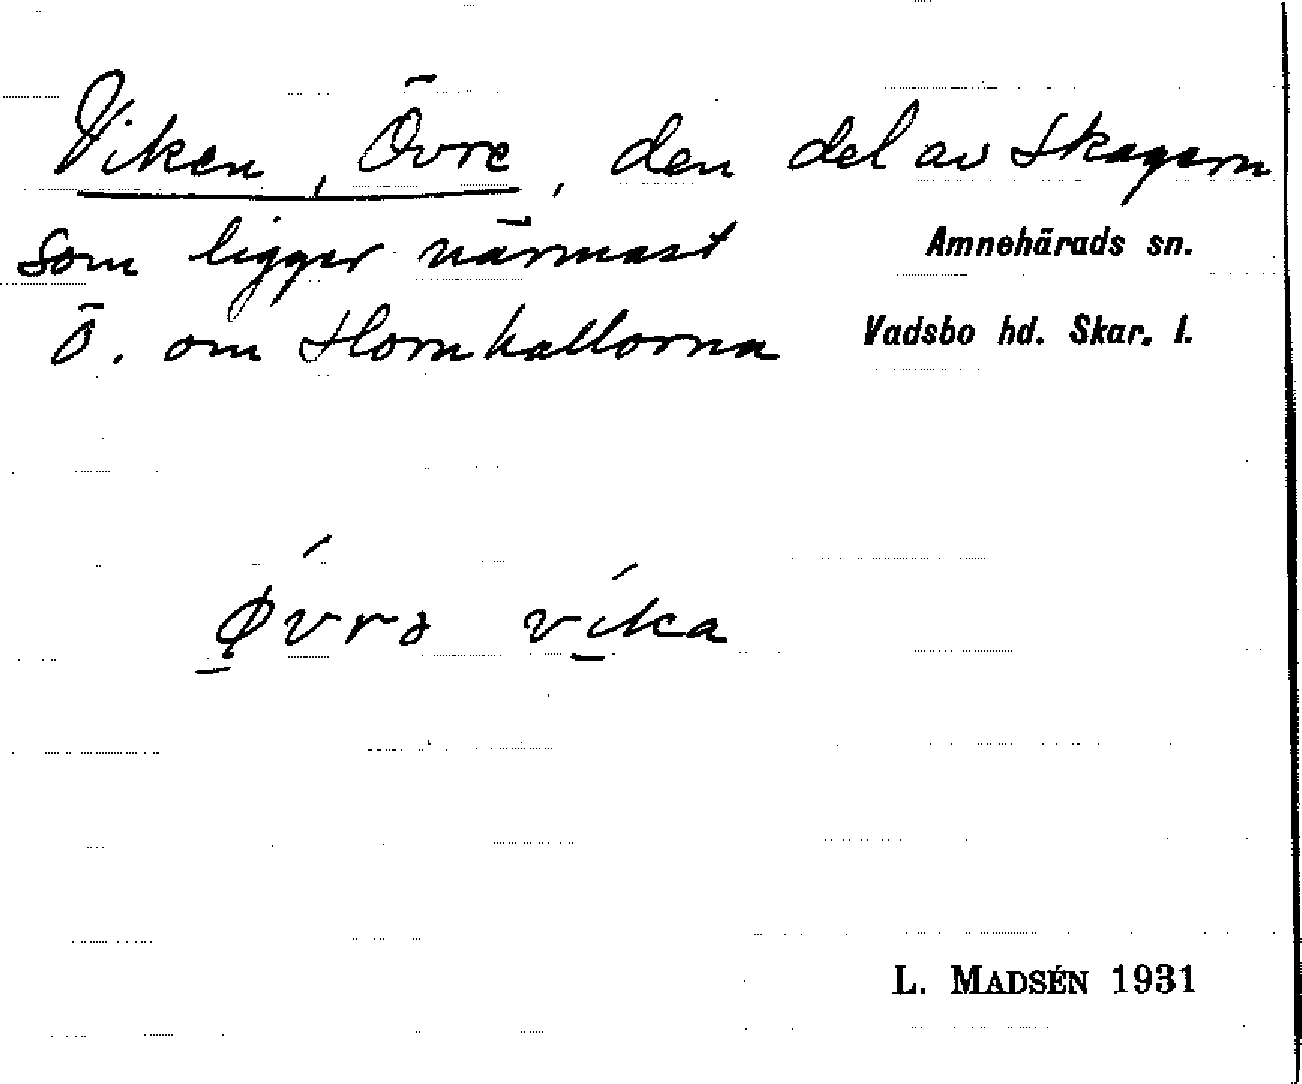 Viken, Övre, den del av Skagern
som ligger närmast
Amnehärads sn.
Ö. om Hornhallorna
Vadsbo hd. Skar. l.
ǿ̠vrə ví̠ka
L. MADSÉN 1931